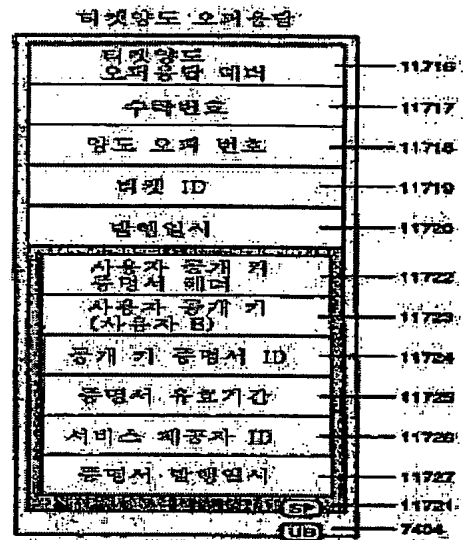 티켓양도 오퍼응답
티켓양도
오퍼응답 헤더 11716
수탁번호 11717
양도 오퍼 번호 11718
티켓 ID 11719
발행일시 11720
사용자 공개 키
증명서 헤더 11722
사용자 공개 키
(사용자 B) 11723
공개 키 증명서 ID 11724
증명서 유효기간 11725
서비스 제공자 ID 11726
증명서 발행일시 11727
SP 11721
UB 7404